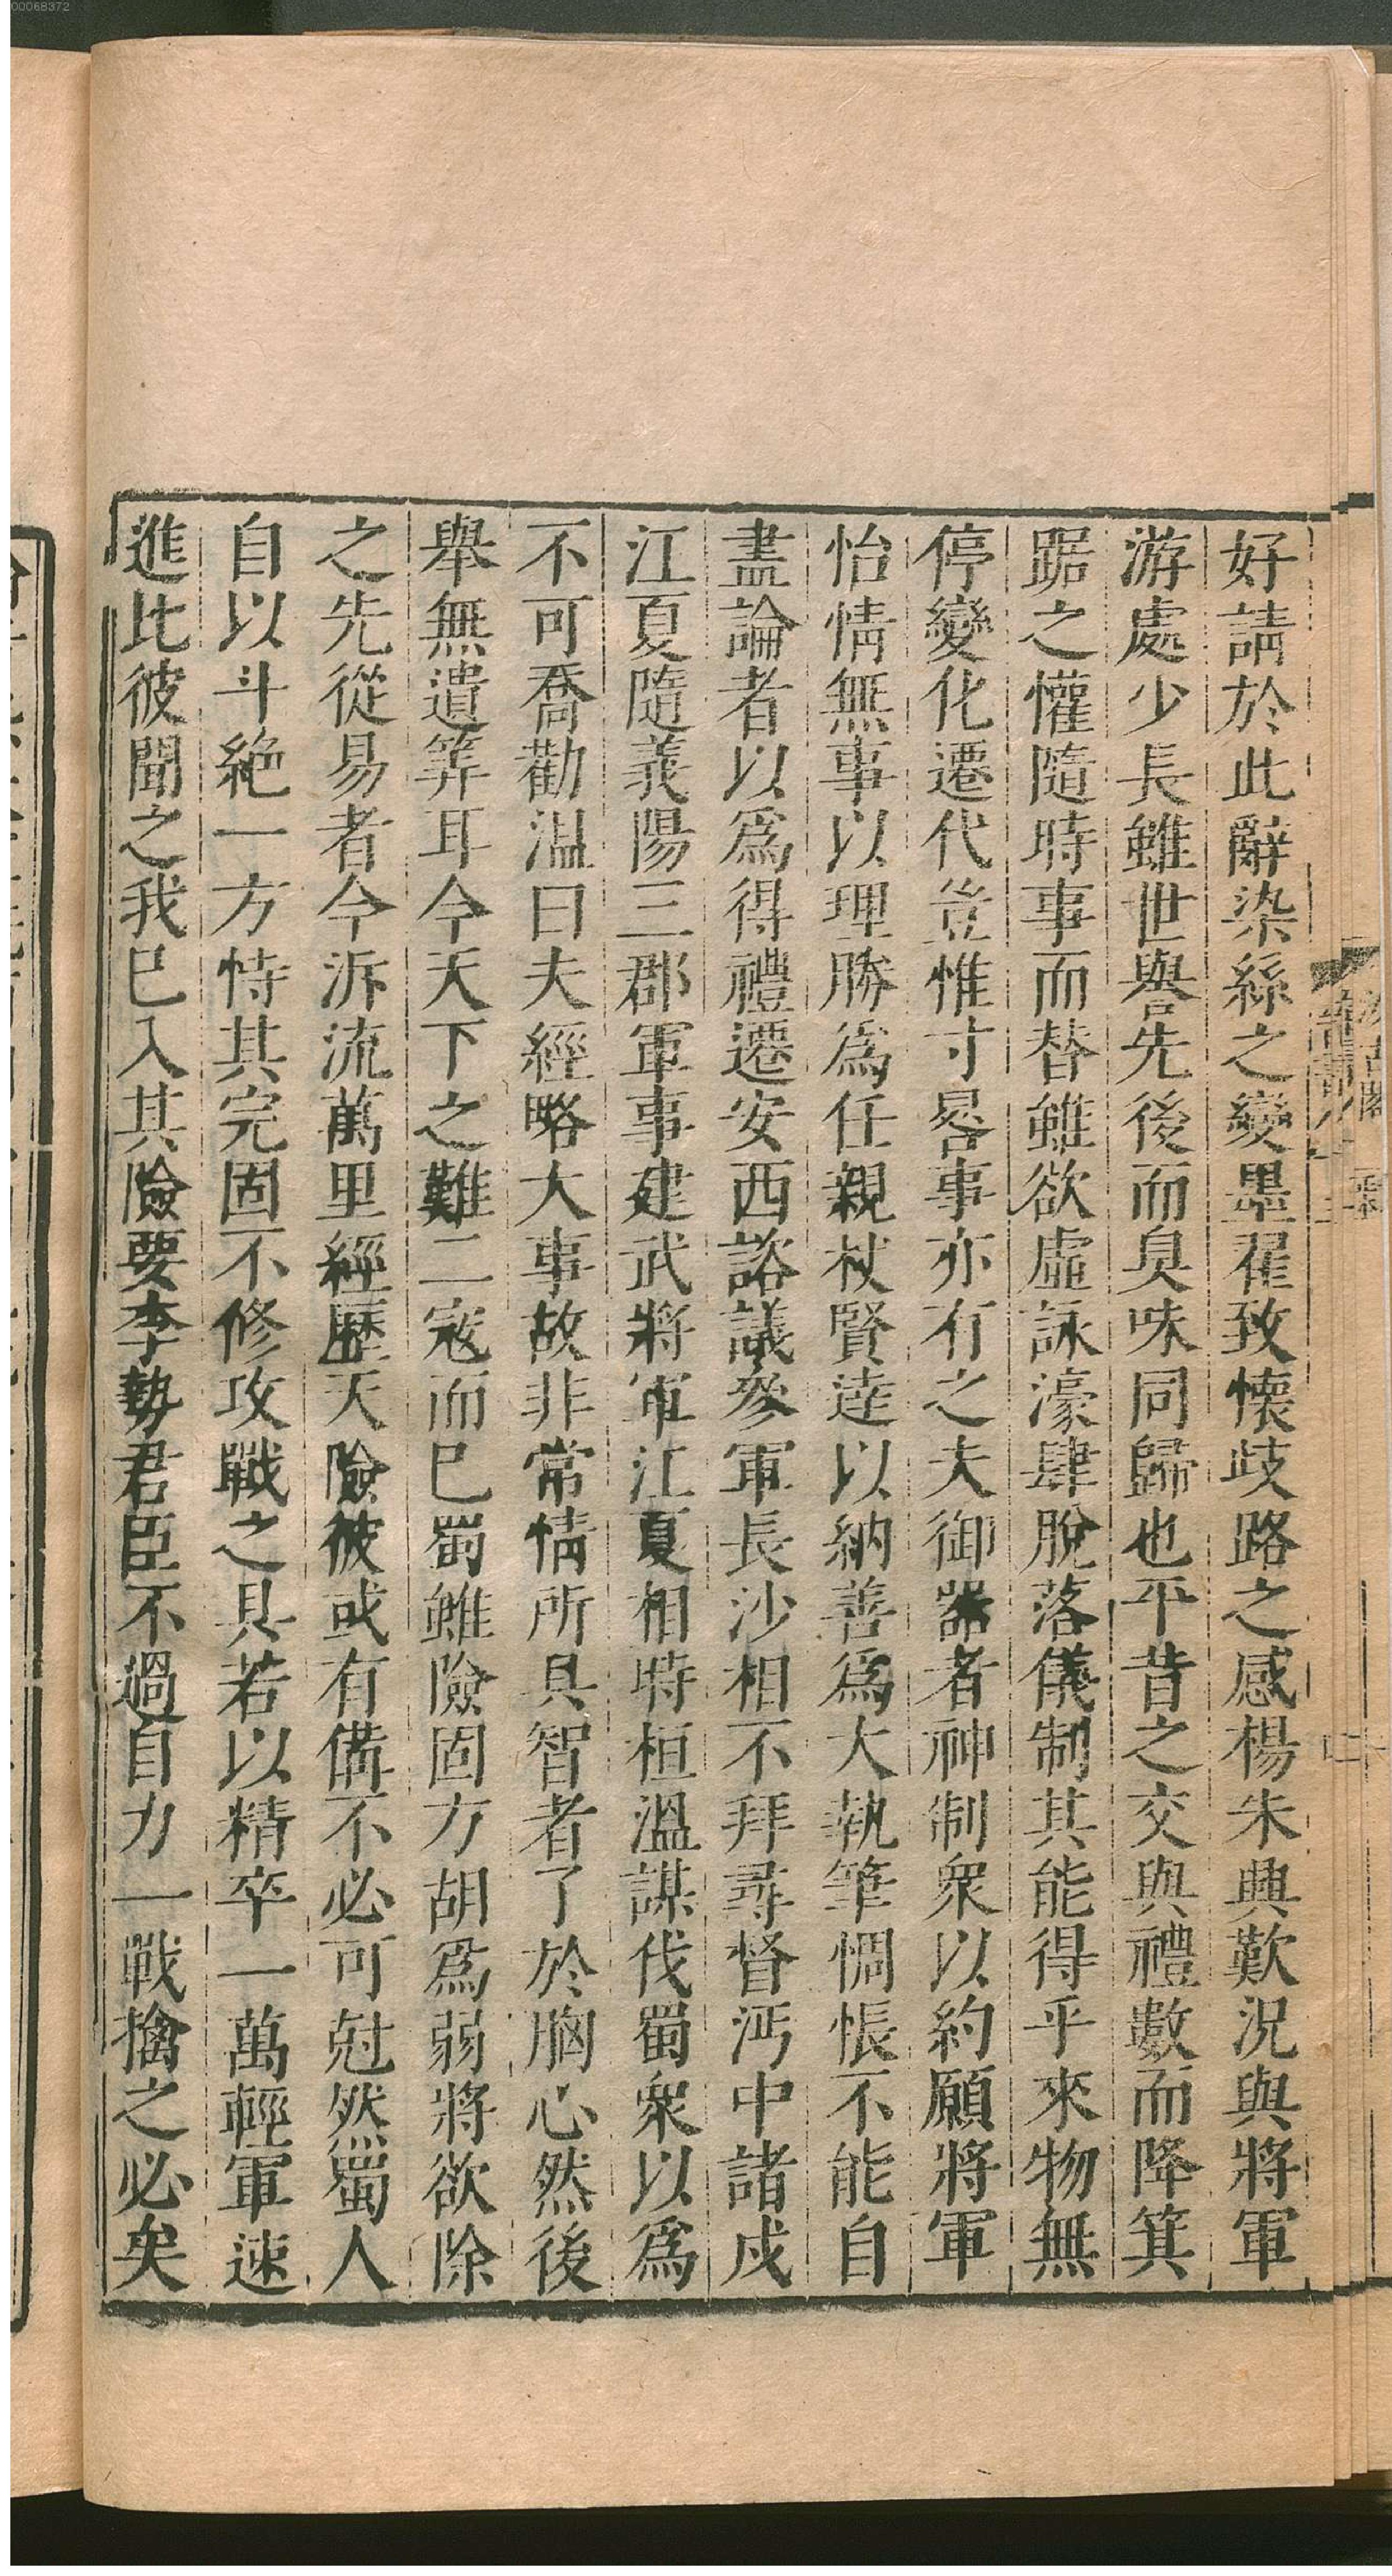 好請於此辭染絲之變墨翟致懷歧路之感楊朱興歎況與將軍
游處少長雖世譽先後而臭味同歸也平昔之交與禮數而降箕
踞之懽隨時事而替雖欲虛詠濠肆脫落儀制其能得乎來物無
停變化遷代豈惟寸晷事亦有之夫御器者神制衆以約願將軍
怡情無事以理勝為任親杖賢達以納善爲大執筆惆悵不能自
盡論者以爲得禮遷安西諮議參軍長沙相不拜尋督沔中諸戍
江夏隨義陽三郡軍事建武將軍江夏相時桓溫謀伐蜀衆以爲
不可喬勸温曰夫經略大事故非常情所具智者了於胸心然後
舉無遺筭耳今天下之難二寇而已蜀雖險固方胡爲弱將欲除
之先從易者今泝流萬里經歷天險彼或有備不必可尅然蜀人
自以斗絶一方恃其完固不修攻戰之具若以精卒一萬輕軍速
進比彼聞之我已入其險要李勢君臣不過自力一戰擒之必矣
00068372